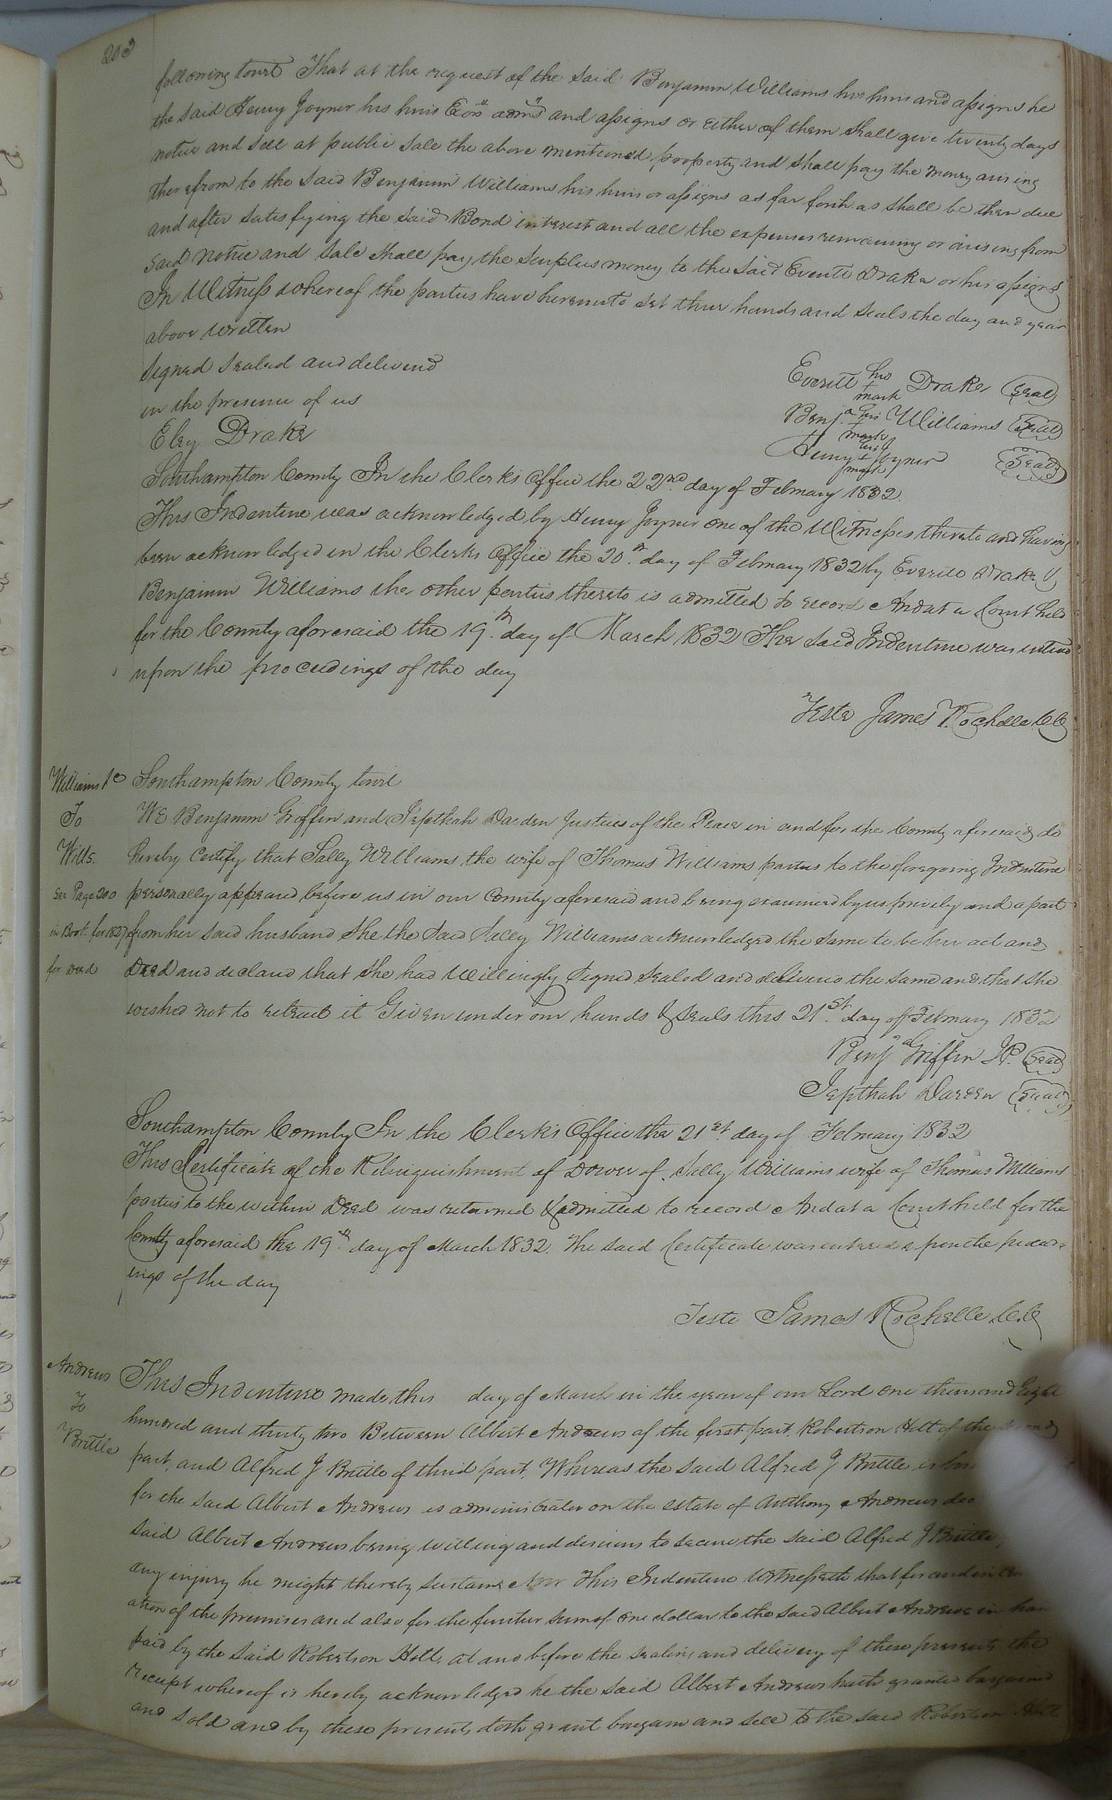 203
following Court That at the request of the said Benjamin Williams his heirs and assigns he
the said Henry Joyner his heirs Exors admrs and assigns or either of them shall give twenty days
notice and sell at public sale the above mentioned property and shall pay the money arising
therefrom to the said Benjamin Williams his heirs or assigns as far forth as shall be then due
and after satisfying the said Bond interest and all the expenses remaining or arising from
said notice and sale shall pay the surplus money to the said Everitt Drake or his assigns
In Witness whereof the parties have hereunto set their hands and seals the day and year
above written
signed sealed and delivered
in the presence of us
Eley Drake
Everitt his + mark Drake (Seal)
Benja his + mark Williams (Seal)
Henry his + mark Joyner (Seal)
Southampton County In the Clerks Office the 22nd day of February 1832
This Indenture was acknowledged by Henry Joyner one of the Witnesses thereto and having
been acknowledged in the Clerks Office the 20th day of February 1832 by Everitt Drake &
Benjamin Williams the other parties thereto is admitted to record And at a Court held
for the County aforesaid the 19th day of March 1832 The said Indenture was entered
upon the proceedings of the day
Teste James Rochelle C.C.
Williams &c
To
Wills.
see Page 200
for deed
Southampton County towit
We Benjamin Griffin and Jepthah Darden Justices of the Peace in and for the County aforesaid do
hereby certify that Sally Williams, the wife of Thomas Williams parties to the foregoing Indenture
personally appeared before us in our County aforesaid and being examined by us privily and apart
from her said husband She the said Sally Williams acknowledged the same to be her act and
Deed and declared that she had Willingly signed sealed and delivered the same and that she
wished not to retract it Given under our hands & seals this 21st day of February 1832
Benja Griffin J.P. (Seal)
Jepthah Darden (Seal)
Southampton County In the Clerk's Office the 21st day of February 1832
This Certificate of the Relinquishment of Dower of Sally Williams wife of Thomas Williams
parties to the within Deed was returned & admitted to record And at a Court held for the
County aforesaid the 19th day of March 1832. The said Certificate was entered upon the proceed=
ings of the day
Teste James Rochelle C.C.
Andrews
To
Brittle
This Indenture made this day of March in the year of our Lord one thousand Eight
hundred and thirty two Between Albert Andrews of the first part, Robertson Holt of the
part, and Alfred J Brittle of third part, Whereas the said Alfred J Brittle is
for the said Albert Andrews as administrator on the estate of Anthony Andrews
said Albert Andrews being willing and desirous to secure the said Alfred J Brittle
any injury he might thereby sustain Now This Indenture Witnesseth that for and in
ation of the premises and also for the further sum of one dollar to the said Albert Andrews in
paid by the said Robertson Holt, at and before the sealing and delivery of these presents the
receipt whereof is hereby acknowledged he the said Albert Andrews hath granted bargained
and sold and by these presents doth grant bargain and sell to the said Robertson Holt